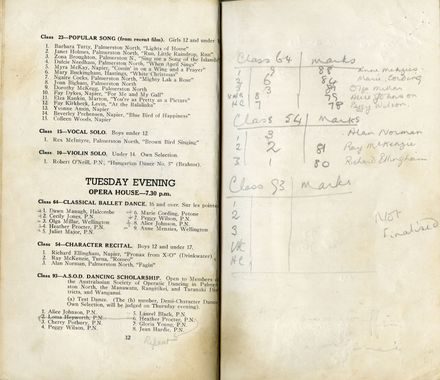 Class 23—POPULAR SONG (from recent film). Girls 12 and under
1. Barbara Terry, Palmerston North, "Lights of House"
2. Janet Holmes, Palmerston North, "Run, Little Raindrop, Run"
3. Zona Broughton, Palmerston N., "Sing me a Song of the Islands"
4. Dulcie Needham, Palmerston North, "When April Sings"
5. Myra McKay, Napier, "Comin' in on a Wing and a Prayer"
6. Mary Buckingham, Hastings, "White Christmas"
7. Squire Cooks, Palmerston North, "Mighty Lak a Rose"
8. Joan Bigham, Palmerston North
9. Dorothy McKegg, Palmerston North
10. Fay Dykes, Napier, "For Me and My Gall"
11. Eliza Rankin, Marton, "You're as Pretty as a Picture"
12. Fay Kirkbeck, Levin, "At the Balalaika"
13. Yvonne Amin, Napier
14. Beverley Prethensen, Napier, "Blue Bird of Happiness"
15. Colleen Woods, Napier
Class 15—VOCAL SOLO. Boys under 12
1. Rex McIntyre, Palmerston North, "Brown Bird Singing"
Class 10—VIOLIN SOLO. Under 14. Own Selection
1. Robert O'Neill, P.N., "Hungarian Dance No. 5" (Brahms).
TUESDAY EVENING
OPERA HOUSE—7.30 p.m.
Class 64—CLASSICAL BALLET DANCE. 16 and over. Sur les pointes
1. Dawn Managh, Halcombe
2. Cecily Jones, P.N.
3. Olga Millar, Wellington
4. Heather Procter, P.N.
5. Juliet Major, P.N.
6. Marie Cording, Petone
7. Peggy Wilson, P.N.
8. Alice Johnson, P.N.
9. Anne Menzies, Wellington
Class 54—CHARACTER RECITAL. Boys 12 and under 17.
1. Richard Ellingham, Napier, "Pronax from X/O" (Drinkwater)
2. Ray McKenzie, Turua, "Romeo"
3. Alan Norman, Palmerston North, "Fagin"
Class 93—A.S.O.D. DANCING SCHOLARSHIP. Open to Members of
the Australasian Society of Operatic Dancing in Palmerston
North, the Manawatu, Rangitikei, and Taranaki Districts,
and Wanganui.
(a) Test Dance. (The (b) member, Demi-Character Dance,
Own Selection, will be judged on Thursday evening):
1. Alice Johnson, P.N.
2. Lorna Hepworth, P.N.
3. Cherry Pothery, P.N.
4. Peggy Wilson, P.N.
5. Laurel Black, P.N.
6. Heather Procter, P.N.
7. Gloria Young, P.N.
8. Jean Hardie, P.N.
12
Class 64 marks
1 2 88 Anne Menzies
2 6 86 Marie Cording
3 Olga Millar
VHC 8
HC 7 78 Peggy Wilson
Class 54 marks
1 3 Alan Norman
2 2 81 Ray McKenzie
3 1 80 Richard Ellingham
Class 93 marks
1
2
3
VHC
HC
Not
finalised